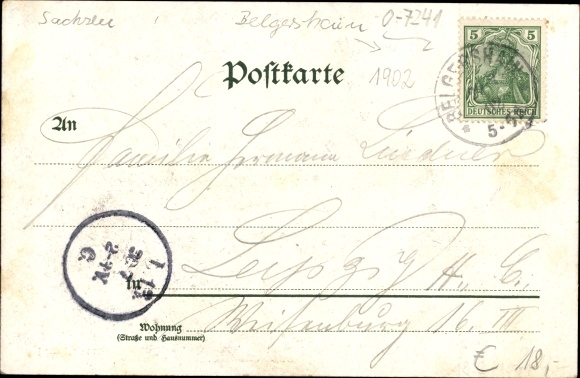 Sachsen Belgershain O-7241
1902
Postkarte
5 5
DEUTSCHES REICH
BELGERSHAIN
5-
An
Familie Hermann Lindner
in Leipzig
Wohnung
(Straße und Hausnummer)
16. III
€ 18,-